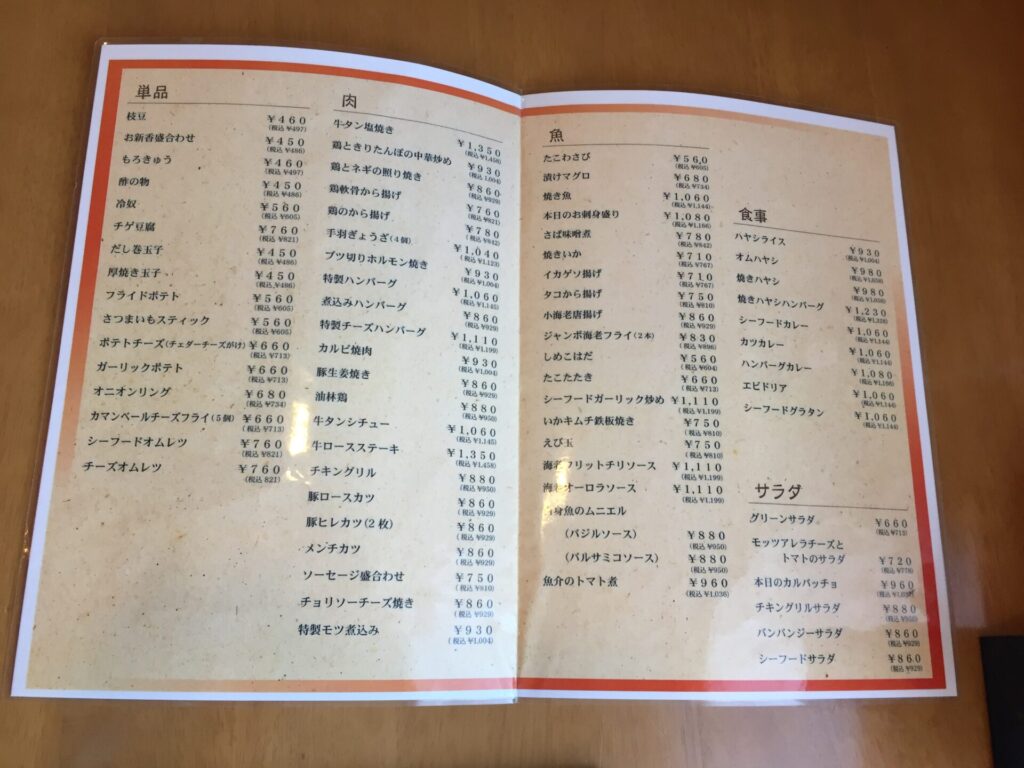 単品
枝豆 ¥460
(税込 ¥497)
お新香盛合わせ ¥450
(税込 ¥486)
もろきゅう ¥460
(税込 ¥497)
酢の物 ¥450
(税込 ¥486)
冷奴 ¥560
(税込 ¥605)
チゲ豆腐 ¥760
(税込 ¥821)
だし巻玉子 ¥450
(税込 ¥486)
厚焼き玉子 ¥450
(税込 ¥486)
フライドポテト ¥560
(税込 ¥605)
さつまいもスティック ¥560
(税込 ¥605)
ポテトチーズ(チェダーチーズがけ) ¥660
(税込 ¥713)
ガーリックポテト ¥660
(税込 ¥713)
オニオンリング ¥680
(税込 ¥734)
カマンベールチーズフライ(5個) ¥660
(税込 ¥713)
シーフードオムレツ ¥760
(税込 ¥821)
チーズオムレツ ¥760
(税込 821)
肉
牛タン塩焼き ¥1,350
(税込 ¥1,458)
鶏ときりたんぽの中華炒め ¥930
(税込 1,004)
鶏とネギの照り焼き ¥860
(税込 ¥929)
鶏軟骨から揚げ ¥760
(税込 ¥821)
鶏のから揚げ ¥780
(税込 ¥842)
手羽ぎょうざ(4個) ¥1,040
(税込 ¥1,123)
ブツ切りホルモン焼き ¥930
(税込 ¥1,004)
特製ハンバーグ ¥1,060
(税込 ¥1,145)
煮込みハンバーグ ¥860
(税込 ¥929)
特製チーズハンバーグ ¥1,110
(税込 ¥1,199)
カルビ焼肉 ¥930
(税込 ¥1,004)
豚生姜焼き ¥860
(税込 ¥929)
油林鶏 ¥880
(税込 ¥950)
牛タンシチュー ¥1,060
(税込 ¥1,145)
牛ロースステーキ ¥1,350
(税込 ¥1,458)
チキングリル ¥880
(税込 ¥950)
豚ロースカツ ¥860
(税込 ¥929)
豚ヒレカツ(2枚) ¥860
(税込 ¥929)
メンチカツ ¥860
(税込 ¥929)
ソーセージ盛合わせ ¥750
(税込 ¥810)
チョリソーチーズ焼き ¥860
(税込 ¥929)
特製モツ煮込み ¥930
(税込 ¥1,004)
魚
たこわさび ¥560
(税込 ¥605)
漬けマグロ ¥680
(税込 ¥734)
焼き魚 ¥1,060
(税込 ¥1,144)
本日のお刺身盛り ¥1,080
(税込 ¥1,166)
さば味噌煮 ¥780
(税込 ¥842)
焼きいか ¥710
(税込 ¥767)
イカゲソ揚げ ¥710
(税込 ¥767)
タコから揚げ ¥750
(税込 ¥810)
小海老唐揚げ ¥860
(税込 ¥929)
ジャンボ海老フライ(2本) ¥830
(税込 ¥896)
しめこはだ ¥560
(税込 ¥604)
たこたたき ¥660
(税込 ¥713)
シーフードガーリック炒め ¥1,110
(税込 ¥1,199)
いかキムチ鉄板焼き ¥750
(税込 ¥810)
えび玉 ¥750
(税込 ¥810)
海老フリットチリソース ¥1,110
(税込 ¥1,199)
海老オーロラソース ¥1,110
(税込 ¥1,199)
身魚のムニエル
(バジルソース) ¥880
(税込 ¥950)
(バルサミコソース) ¥880
(税込 ¥950)
魚介のトマト煮 ¥960
(税込 ¥1,036)
食事
ハヤシライス ¥930
(税込 ¥1,004)
オムハヤシ ¥980
(税込 ¥1,058)
焼きハヤシ ¥980
(税込 ¥1,058)
焼きハヤシハンバーグ ¥1,230
(税込 ¥1,328)
シーフードカレー ¥1,060
(税込 ¥1,144)
カツカレー ¥1,060
(税込 ¥1,144)
ハンバーグカレー ¥1,080
(税込 ¥1,166)
エビドリア ¥1,060
(税込 ¥1,144)
シーフードグラタン ¥1,060
(税込 ¥1,144)
サラダ
グリーンサラダ ¥660
(税込 ¥713)
モッツアレラチーズと
トマトのサラダ ¥720
(税込 ¥778)
本日のカルパッチョ ¥960
(税込 ¥1,036)
チキングリルサラダ ¥880
(税込 ¥950)
バンバンジーサラダ ¥860
(税込 ¥929)
シーフードサラダ ¥860
(税込 ¥929)